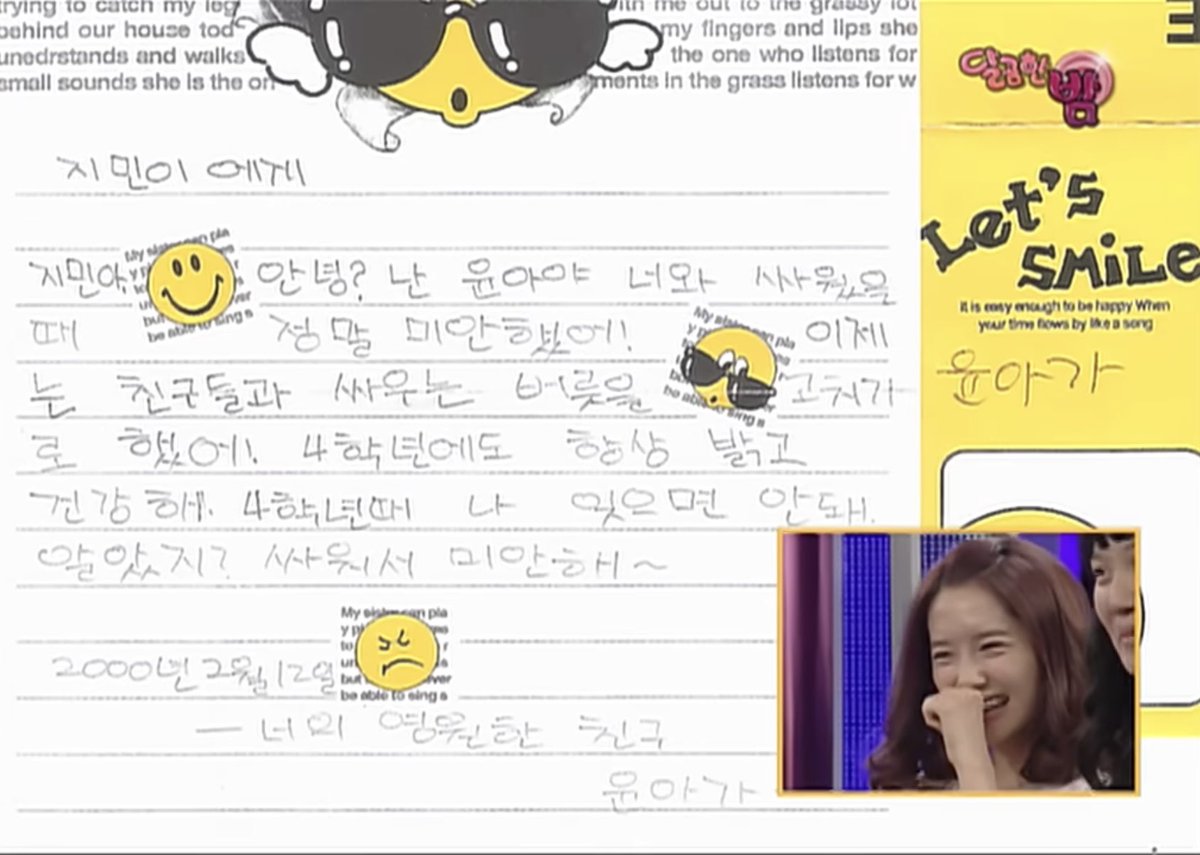 trying to catch my leg
behind our house tod
unedrstands and walks
small sounds she is the on
ith me out to the grassy lot
my fingers and lips she
the one who listens for
ments in the grass listens for w
달콤한
밤
Let's
SMiLe
It is easy enough to be happy When
your time flows by like a song
윤아가
지민이 에게
지민아, 안녕? 난 윤아야 너와 싸웠을
때 정말 미안했어! 이제
는 친구들과 싸우는 버릇을 고쳐가
로 했어! 4학년에도 항상 밝고
건강해. 4학년때 나 잊으면 안돼.
알았지? 싸워서 미안해~
My sister can pla
be able to sing s
My sister can pla
be able to sing s
My sister can pla
be able to sing s
2000년 2월 12일
— 너의 영원한 친구
윤아가